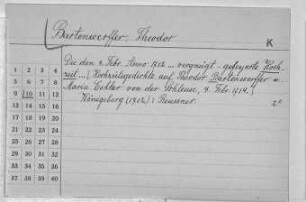 Bartenwerffer, Theodor
K
Die den 4. Febr. Anno 1712 ... vergnügt-gefeyerte Hoch-
zeit ...[Hochzeitsgedichte auf Theodor Bartenwerffer u.
Maria Echter von der Schleuse, 4. Febr. 1714.
Königsberg (1712): Reussner. 2°
1 2 3 4
5 6 7 8
9 10 11 12
13 14 15 16
17 18 19 20
21 22 23 24
25 26 27 28
29 30 31 32
33 34 35 36
37 38 39 40